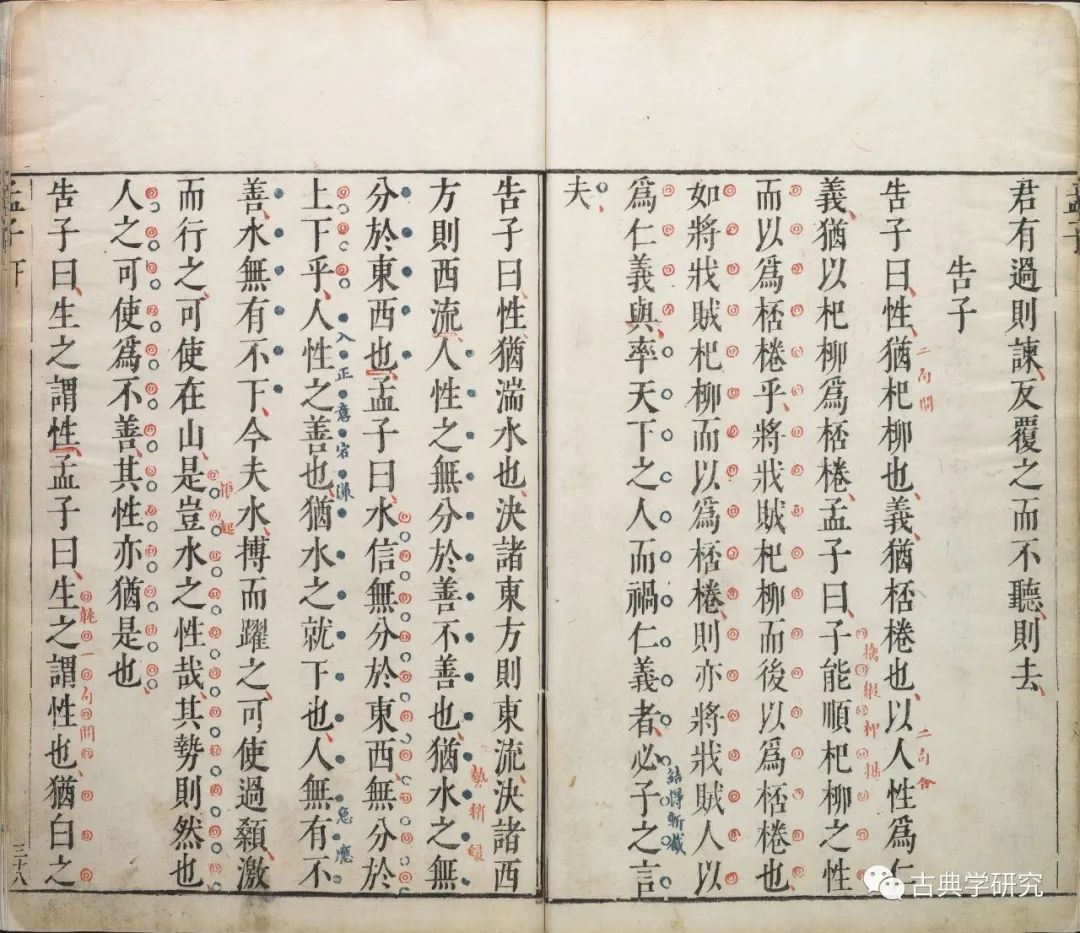 孟子
君有過則諫反覆之而不聽則去
告子
告子曰性猶杞柳也義猶桮棬也以人性爲仁
二句開
二句合
義猶以杞柳爲桮棬孟子曰子能順杞柳之性
而以爲桮棬乎將戕賊杞柳而後以爲桮棬也
如將戕賊杞柳而以爲桮棬則亦將戕賊人以
爲仁義與率天下之人而禍仁義者必子之言
結得斬截
夫
告子曰性猶湍水也決諸東方則東流決諸西
方則西流人性之無分於善不善也猶水之無
勢稍緩
分於東西也孟子曰水信無分於東西無分於
上下乎人性之善也猶水之就下也人無有不
入正意
急應
善水無有不下今夫水搏而躍之可使過顙激
而行之可使在山是豈水之性哉其勢則然也
人之可使爲不善其性亦猶是也
告子曰生之謂性孟子曰生之謂性也猶白之
一句問
孟子下
三十八
古典学研究